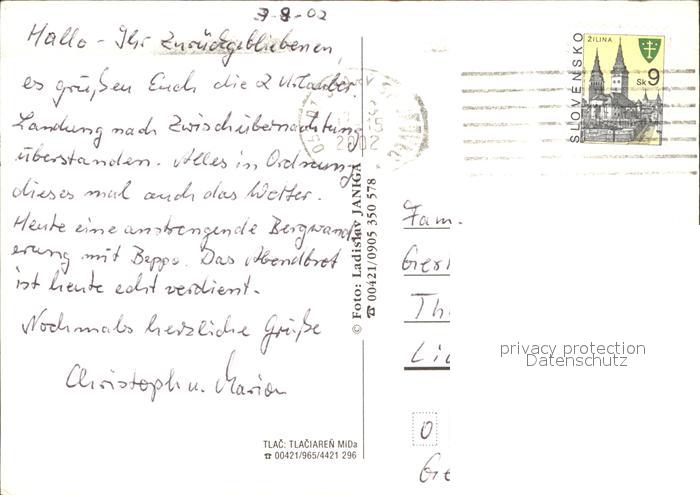 3-8-02
Hallo - Ihr Zurückgebliebenen,
es grüßen Euch die 2 Urlauber.
Landung nach Zwischübernachtung
überstanden. Alles in Ordnung
dieses mal auch das Wetter.
Heute eine anstrengende Bergwand
erung mit Beppo. Das Abendbrot
ist heute echt verdient.
Nochmals herzliche Grüße
Christoph u. Marion
TLAČ: TLAČIAREŇ MiDa
☎ 00421/965/4421 296
© Foto: Ladislav JANIGA
☎ 00421/0905 350 578
2002
SLOVENSKO
ŽILINA
Sk 9
Fam.
privacy protection
Datenschutz
0